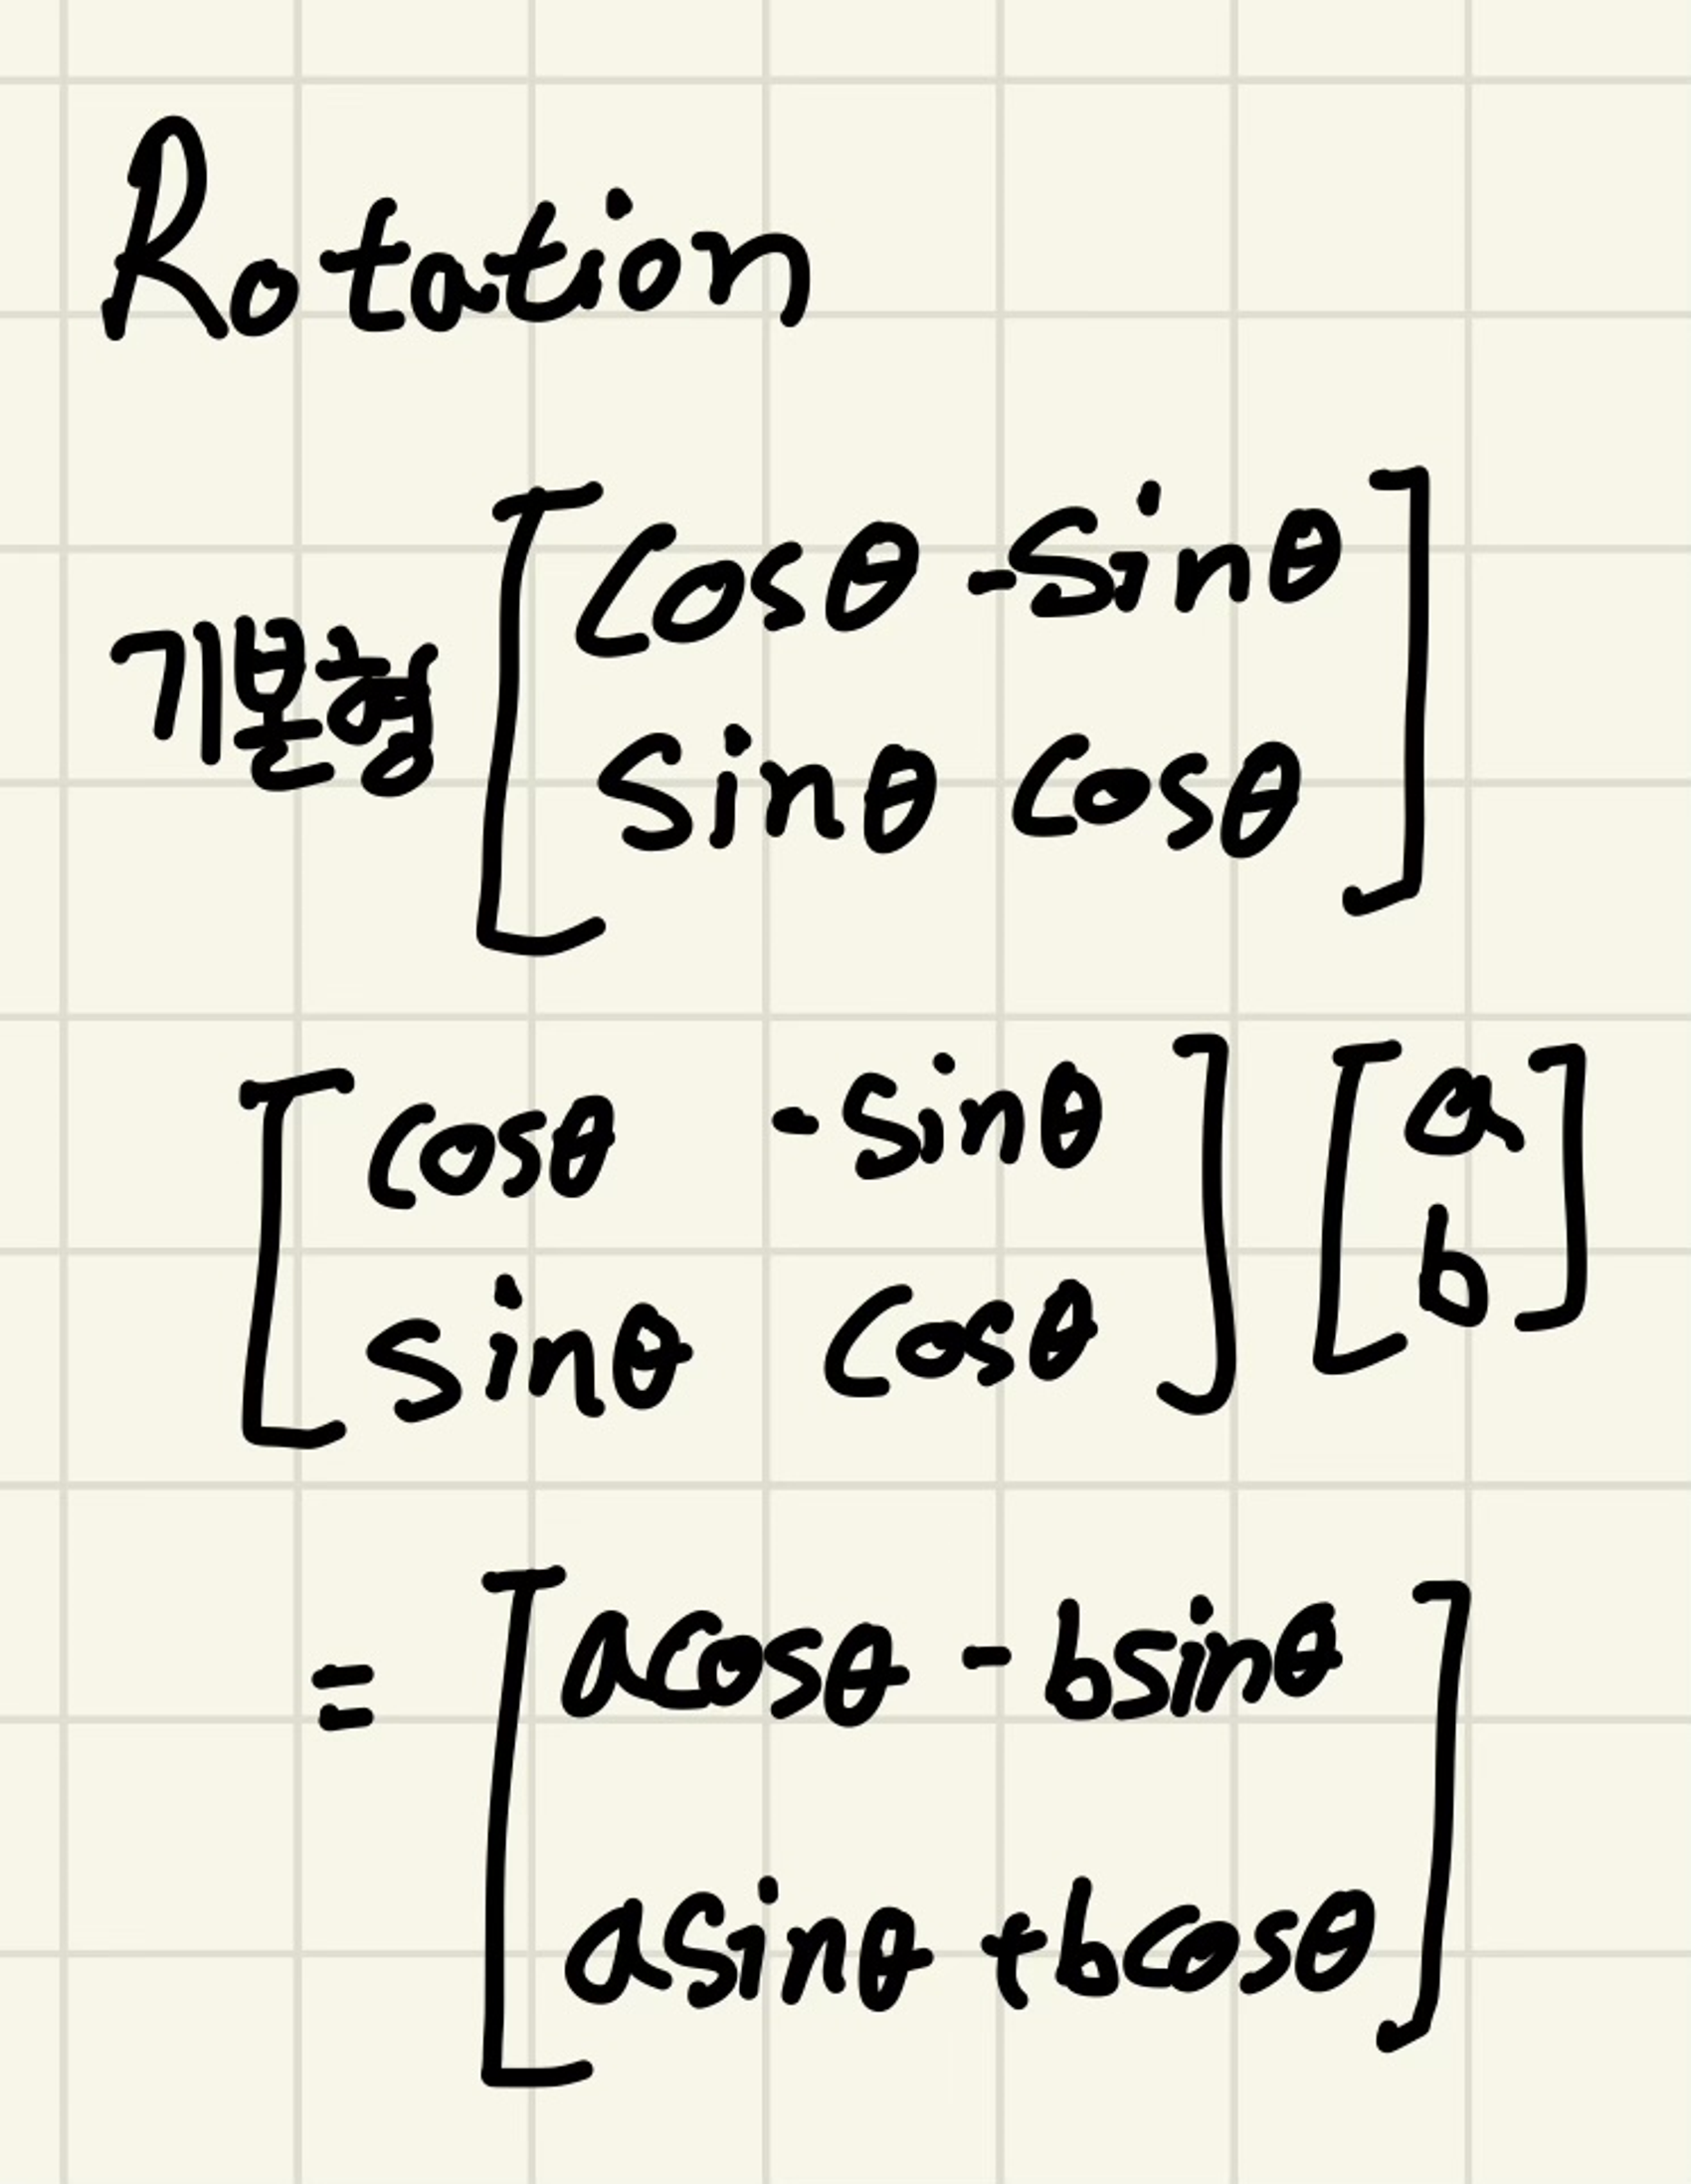 Rotation
기본형 [cosθ -sinθ
sinθ cosθ]
[cosθ -sinθ
sinθ cosθ] [a
b]
= [acosθ - bsinθ
asinθ + bcosθ]